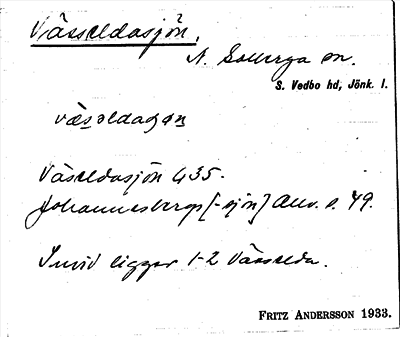 Vässeldasjön,
N. Solberga sn.
S. Vedbo hd, Jönk. l.
Väseldasjön G35.
Johannesbergs [-sjön] Anv. s. 49.
Invid ligger 1-2 Vässelda.
FRITZ ANDERSSON 1933.